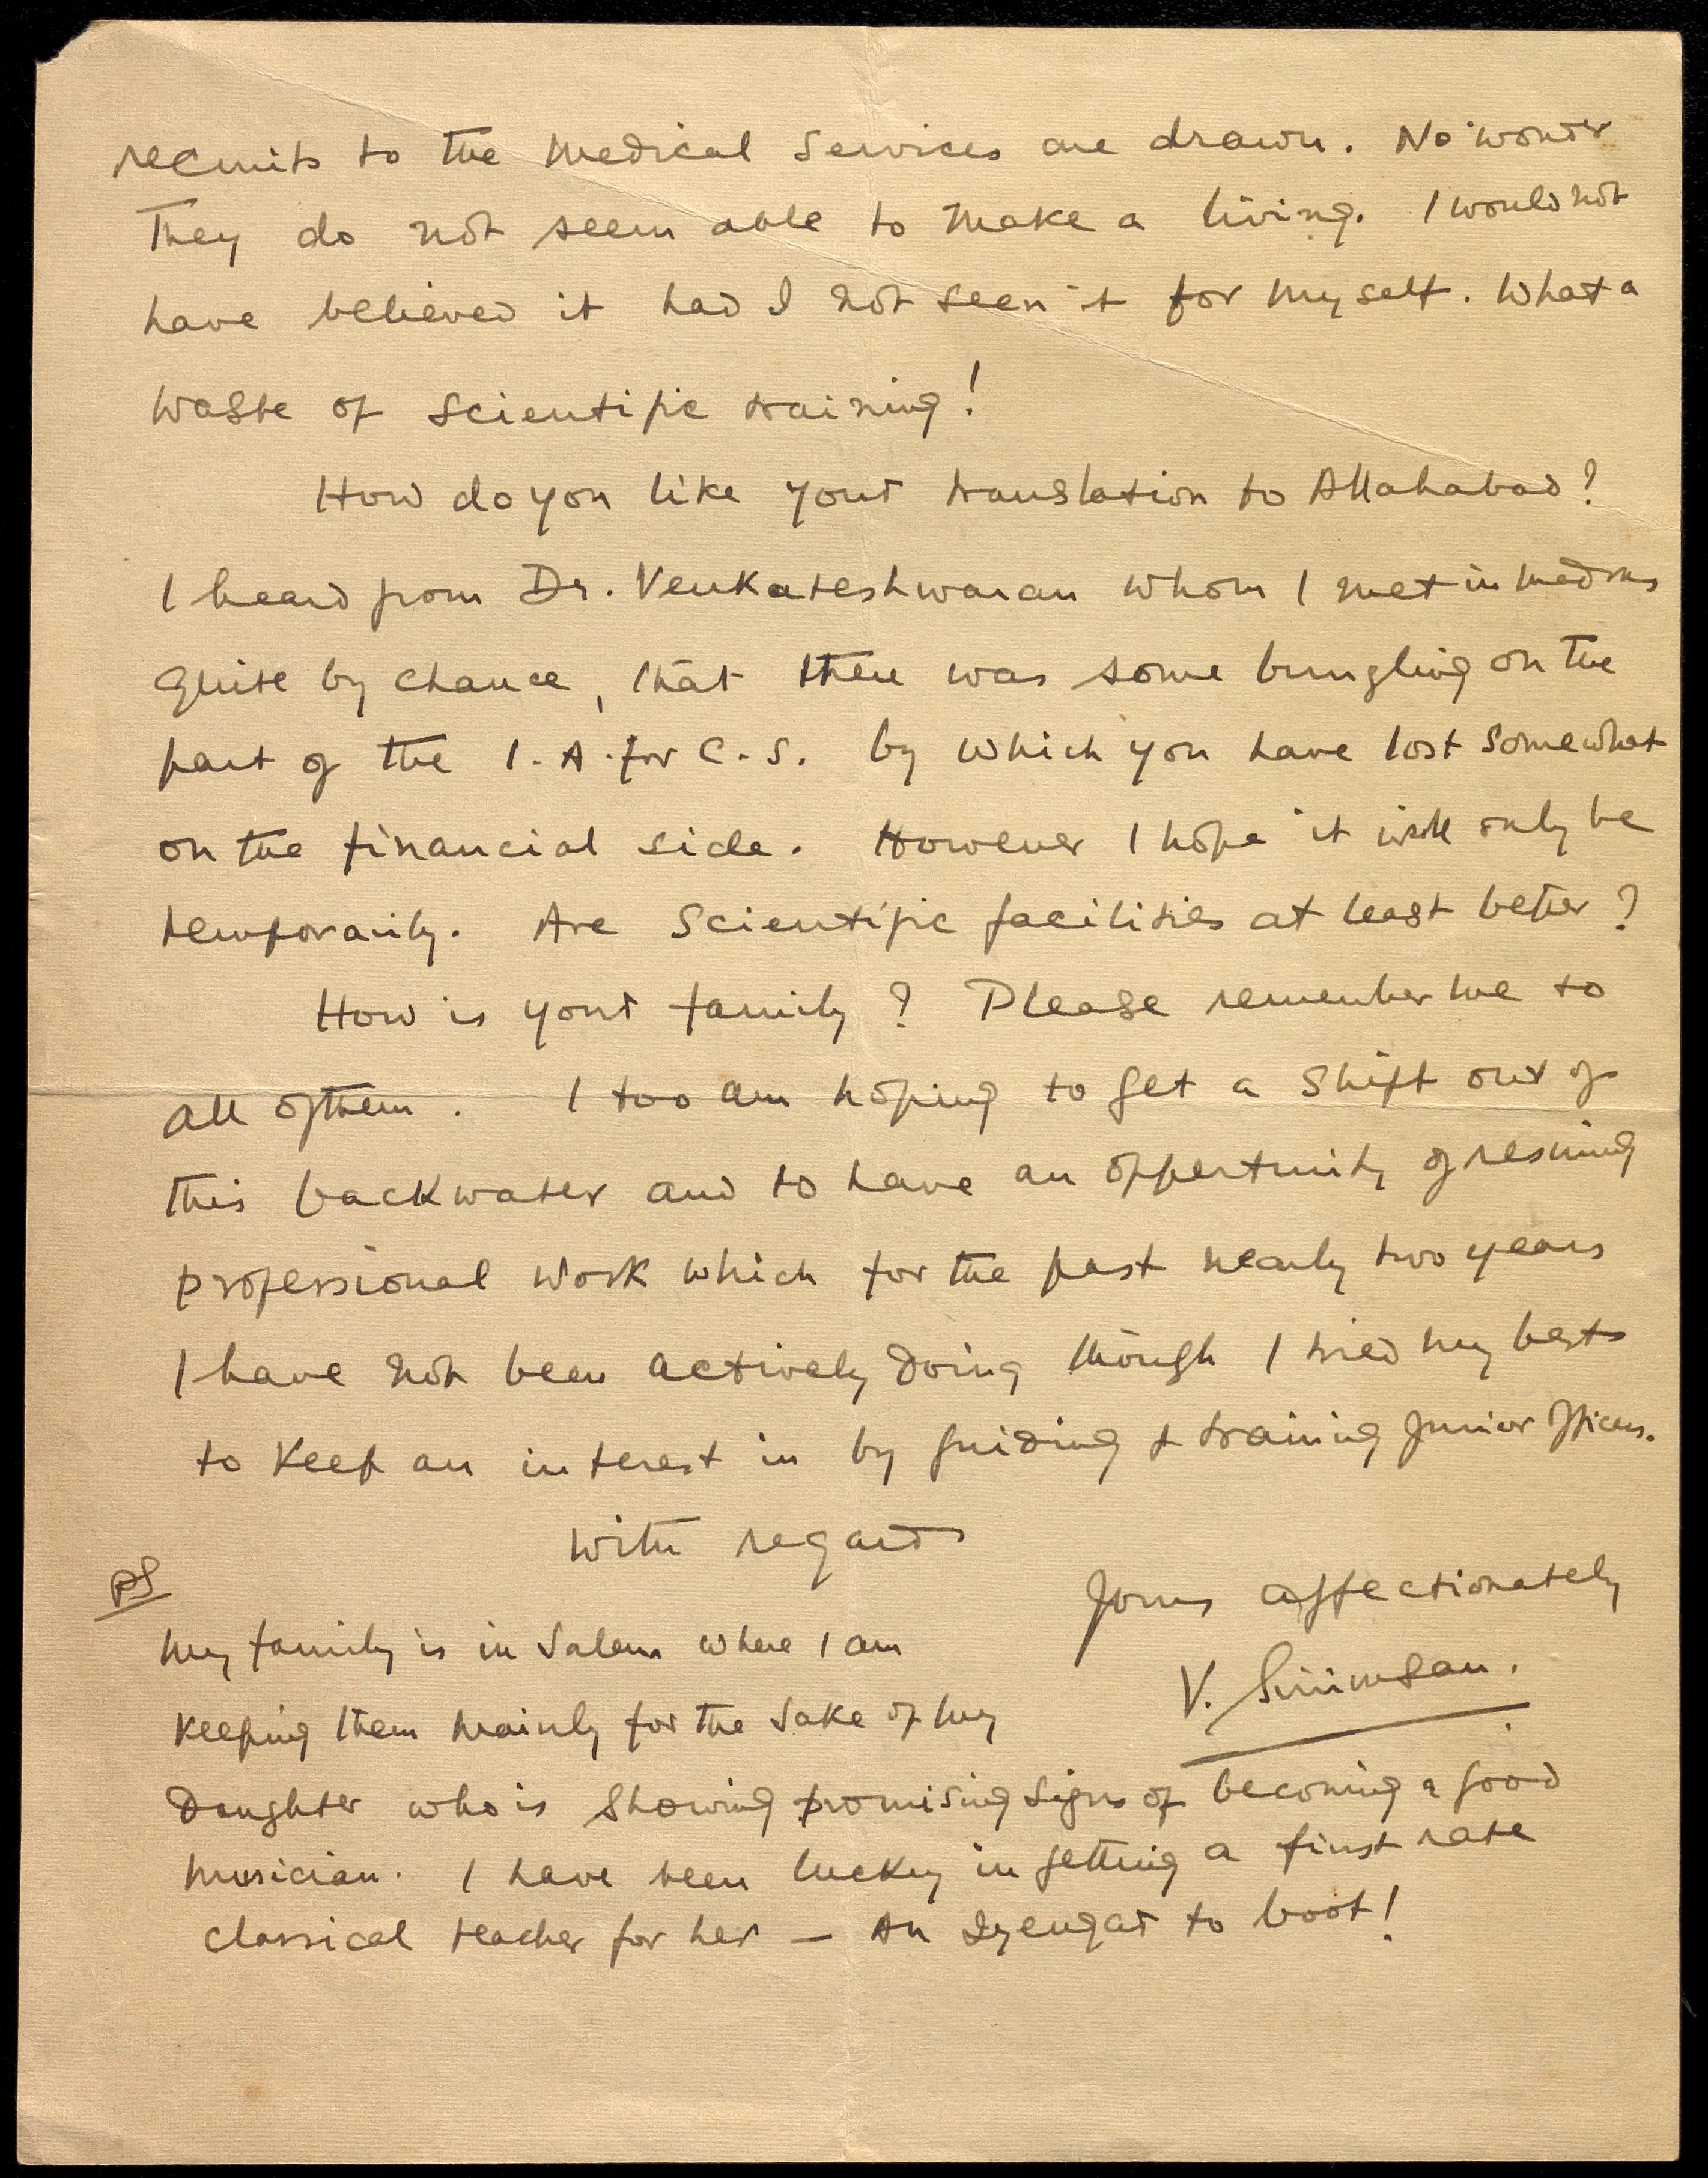 recruits to the Medical Services are drawn. No wonder
They do not seem able to make a living. I would not
have believed it had I not seen it for myself. What a
waste of scientific training!
How do you like your translation to Allahabad?
I heard from Dr. Venkateshwaran whom I met in Madras
quite by chance, that there was some bungling on the
part of the I.A. for C.S. by which you have lost somewhat
on the financial side. However I hope it will only be
temporarily. Are Scientific facilities at least better?
How is your family? Please remember me to
all of them. I too am hoping to get a shift out of
this backwater and to have an oppertunity of resuming
professional work which for the past nearly two years
I have not been actively doing though I tried my best
to keep an interest in by guiding & training Junior Officers.
With regards
Yours affectionately
V. Srinivasan.
PS
My family is in Salem where I am
keeping them mainly for the sake of my
daughter who is showing promising signs of becoming a good
musician. I have been lucky in getting a first rate
classical teacher for her — An Iyengar to boot!